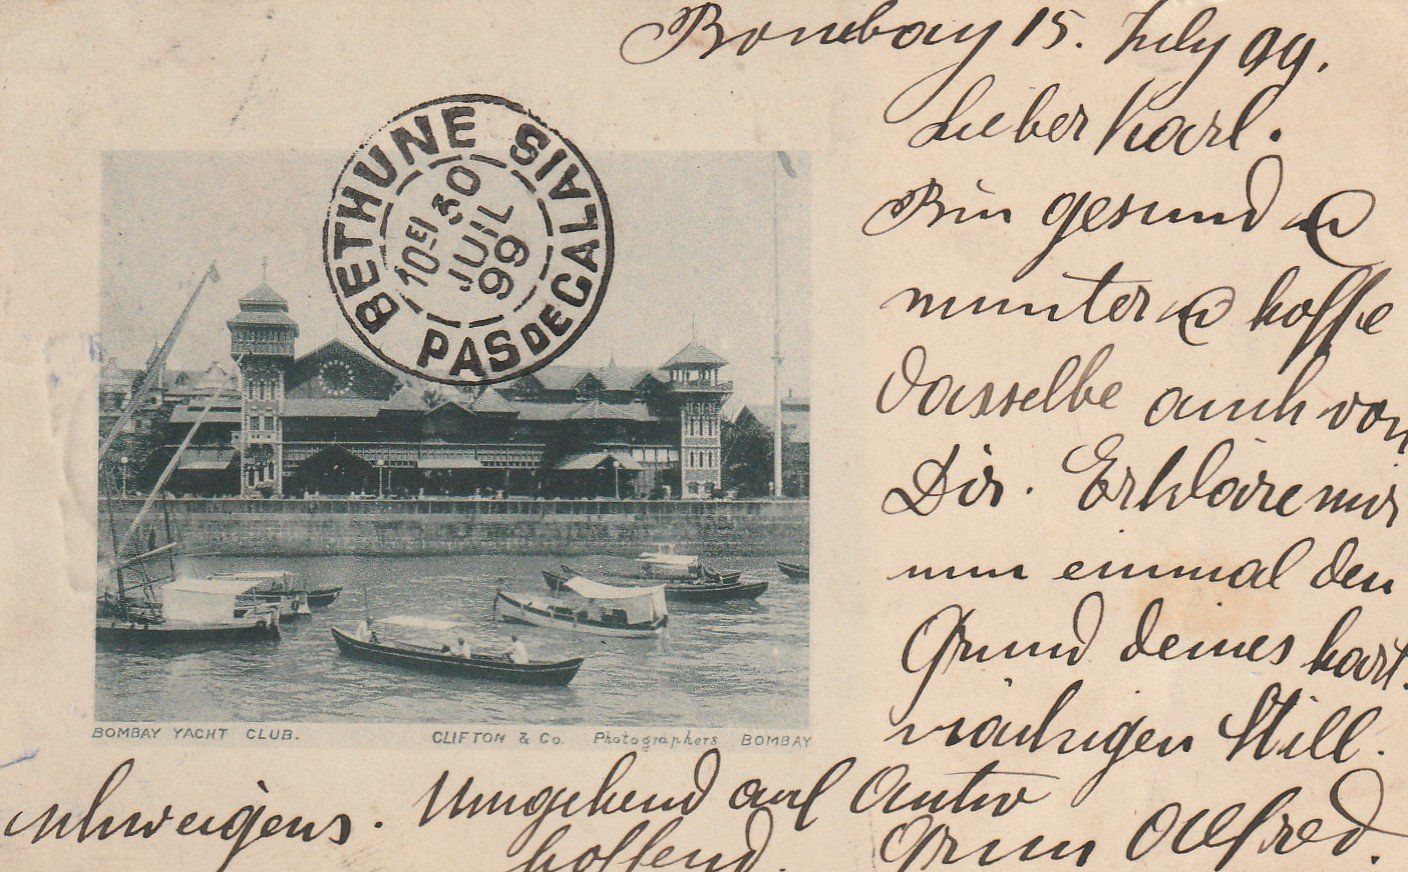 Bombay 15. July 99.
Lieber Karl.
Bin gesund u
munter u hoffe
dasselbe auch von
Dir. Erkläre mir
nun einmal den
Grund deines hart.
näckigen Still.
schweigens. Umgehend auf Antw
hoffend. Gruss Alfred.
BETHUNE
PAS DE CALAIS
10E 30
JUIL
99
BOMBAY YACHT CLUB.
CLIFTON & Co. Photographers BOMBAY